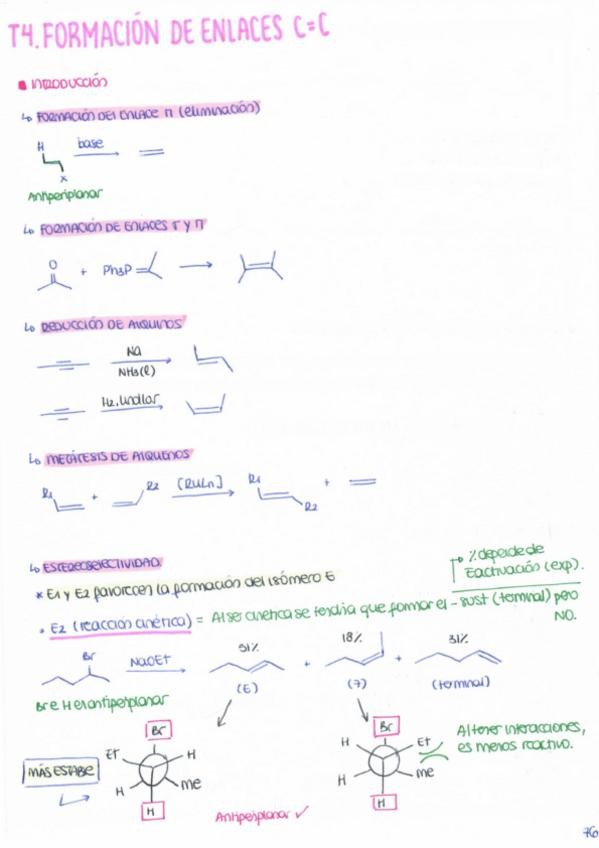 T4. FORMACIÓN DE ENLACES C=C
INTRODUCCIÓN
↳ FORMACIÓN DEL ENLACE π (eliminación)
H base
x
Antiperiplanar
↳ FORMACIÓN DE ENLACES σ y π
O + Ph3P
↳ REDUCCIÓN DE ALQUINOS
Na
NH3(l)
H2, Lindlar
↳ METÁTESIS DE ALQUENOS
R1 + R2 [RuLn] R1 R2 +
↳ ESTEREOSELECTIVIDAD
→ % depende de
Eactivación (exp).
* E1 y E2 favorecen la formación del isómero E
• E2 (reacción cinética) = Al ser cinética se tendría que formar el - sust (terminal) pero
NO.
Br NaOEt 51% + 18% + 31%
(E) (Z) (terminal)
Br e H en antiperiplanar
Br
Et H
H Me
H
MÁS ESTABLE
Br
H Et
H Me
H
Al tener interacciones,
es menos reactivo.
Antiperiplanar ✓
76